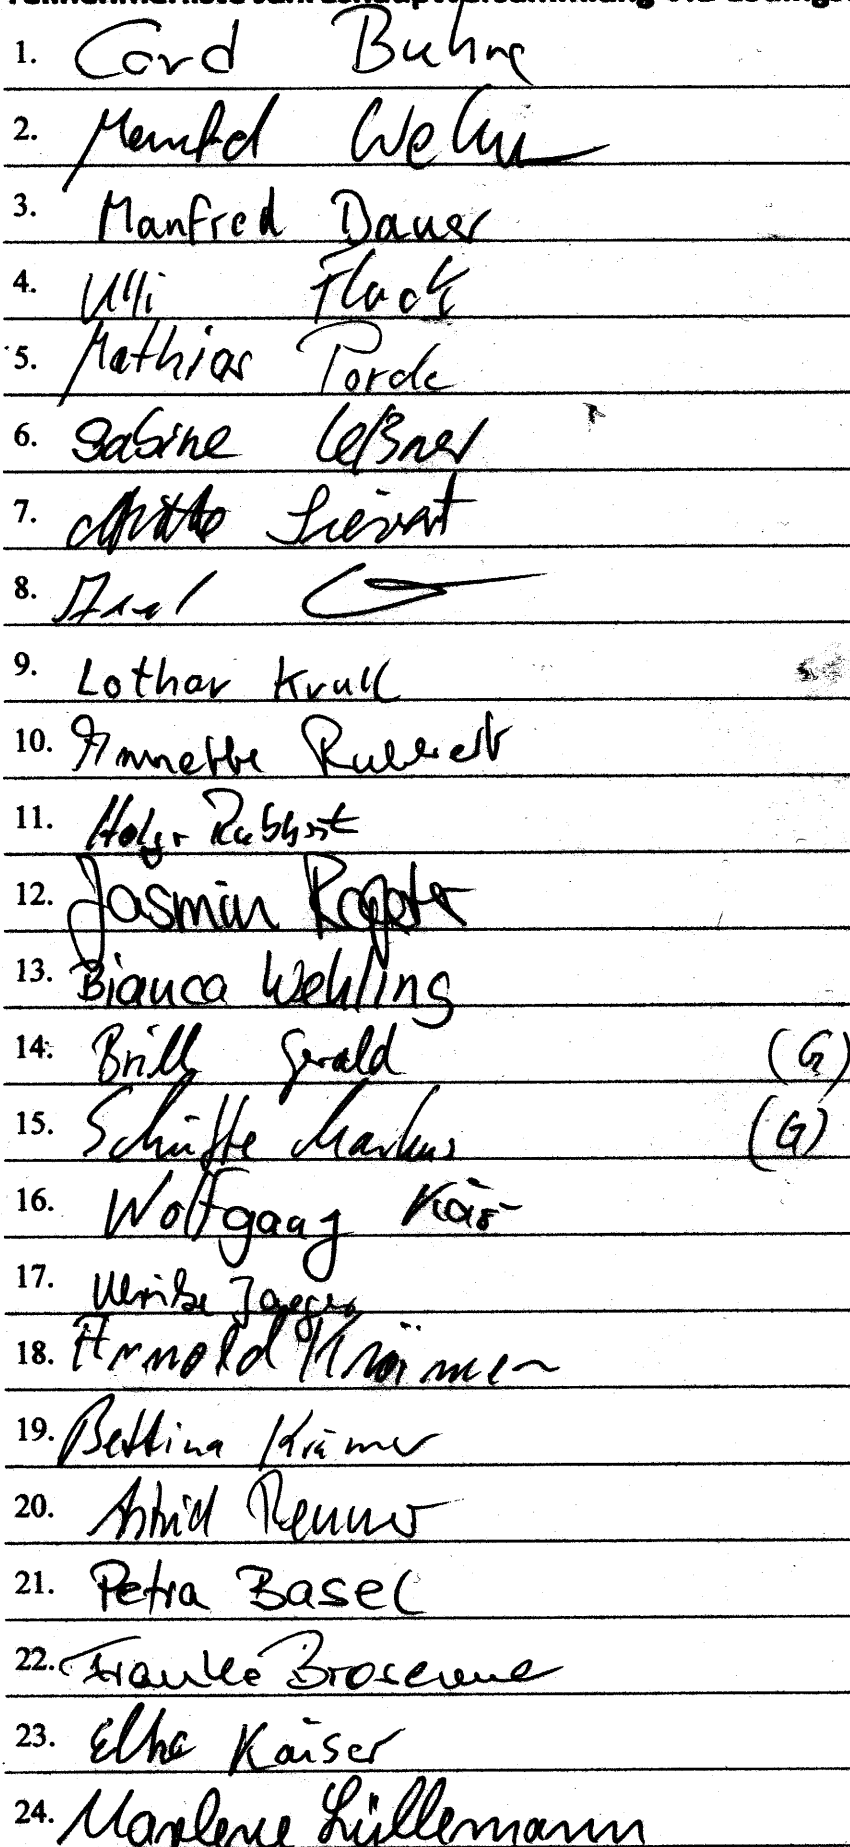 1. Cord Buhne
2. Manfred
3. Manfred Dauer
4. Ulli Flack
5. Mathias Porde
6. Sabine Leßner
7. Sievert
8. Axel
9. Lothar Krull
10. Annette Rubbert
11. Holger Rubbert
12. Jasmin
13. Bianca Wehling
14. Brill Gerald (G)
15. Schütte Markus (G)
16. Wolfgang
17. Ulrike Jaeger
18. Arnold Krämer
19. Bettina Krämer
20. Astrid Renner
21. Petra Basel
22. Frauke Brosenne
23. Elke Kaiser
24. Marlene Lüllemann